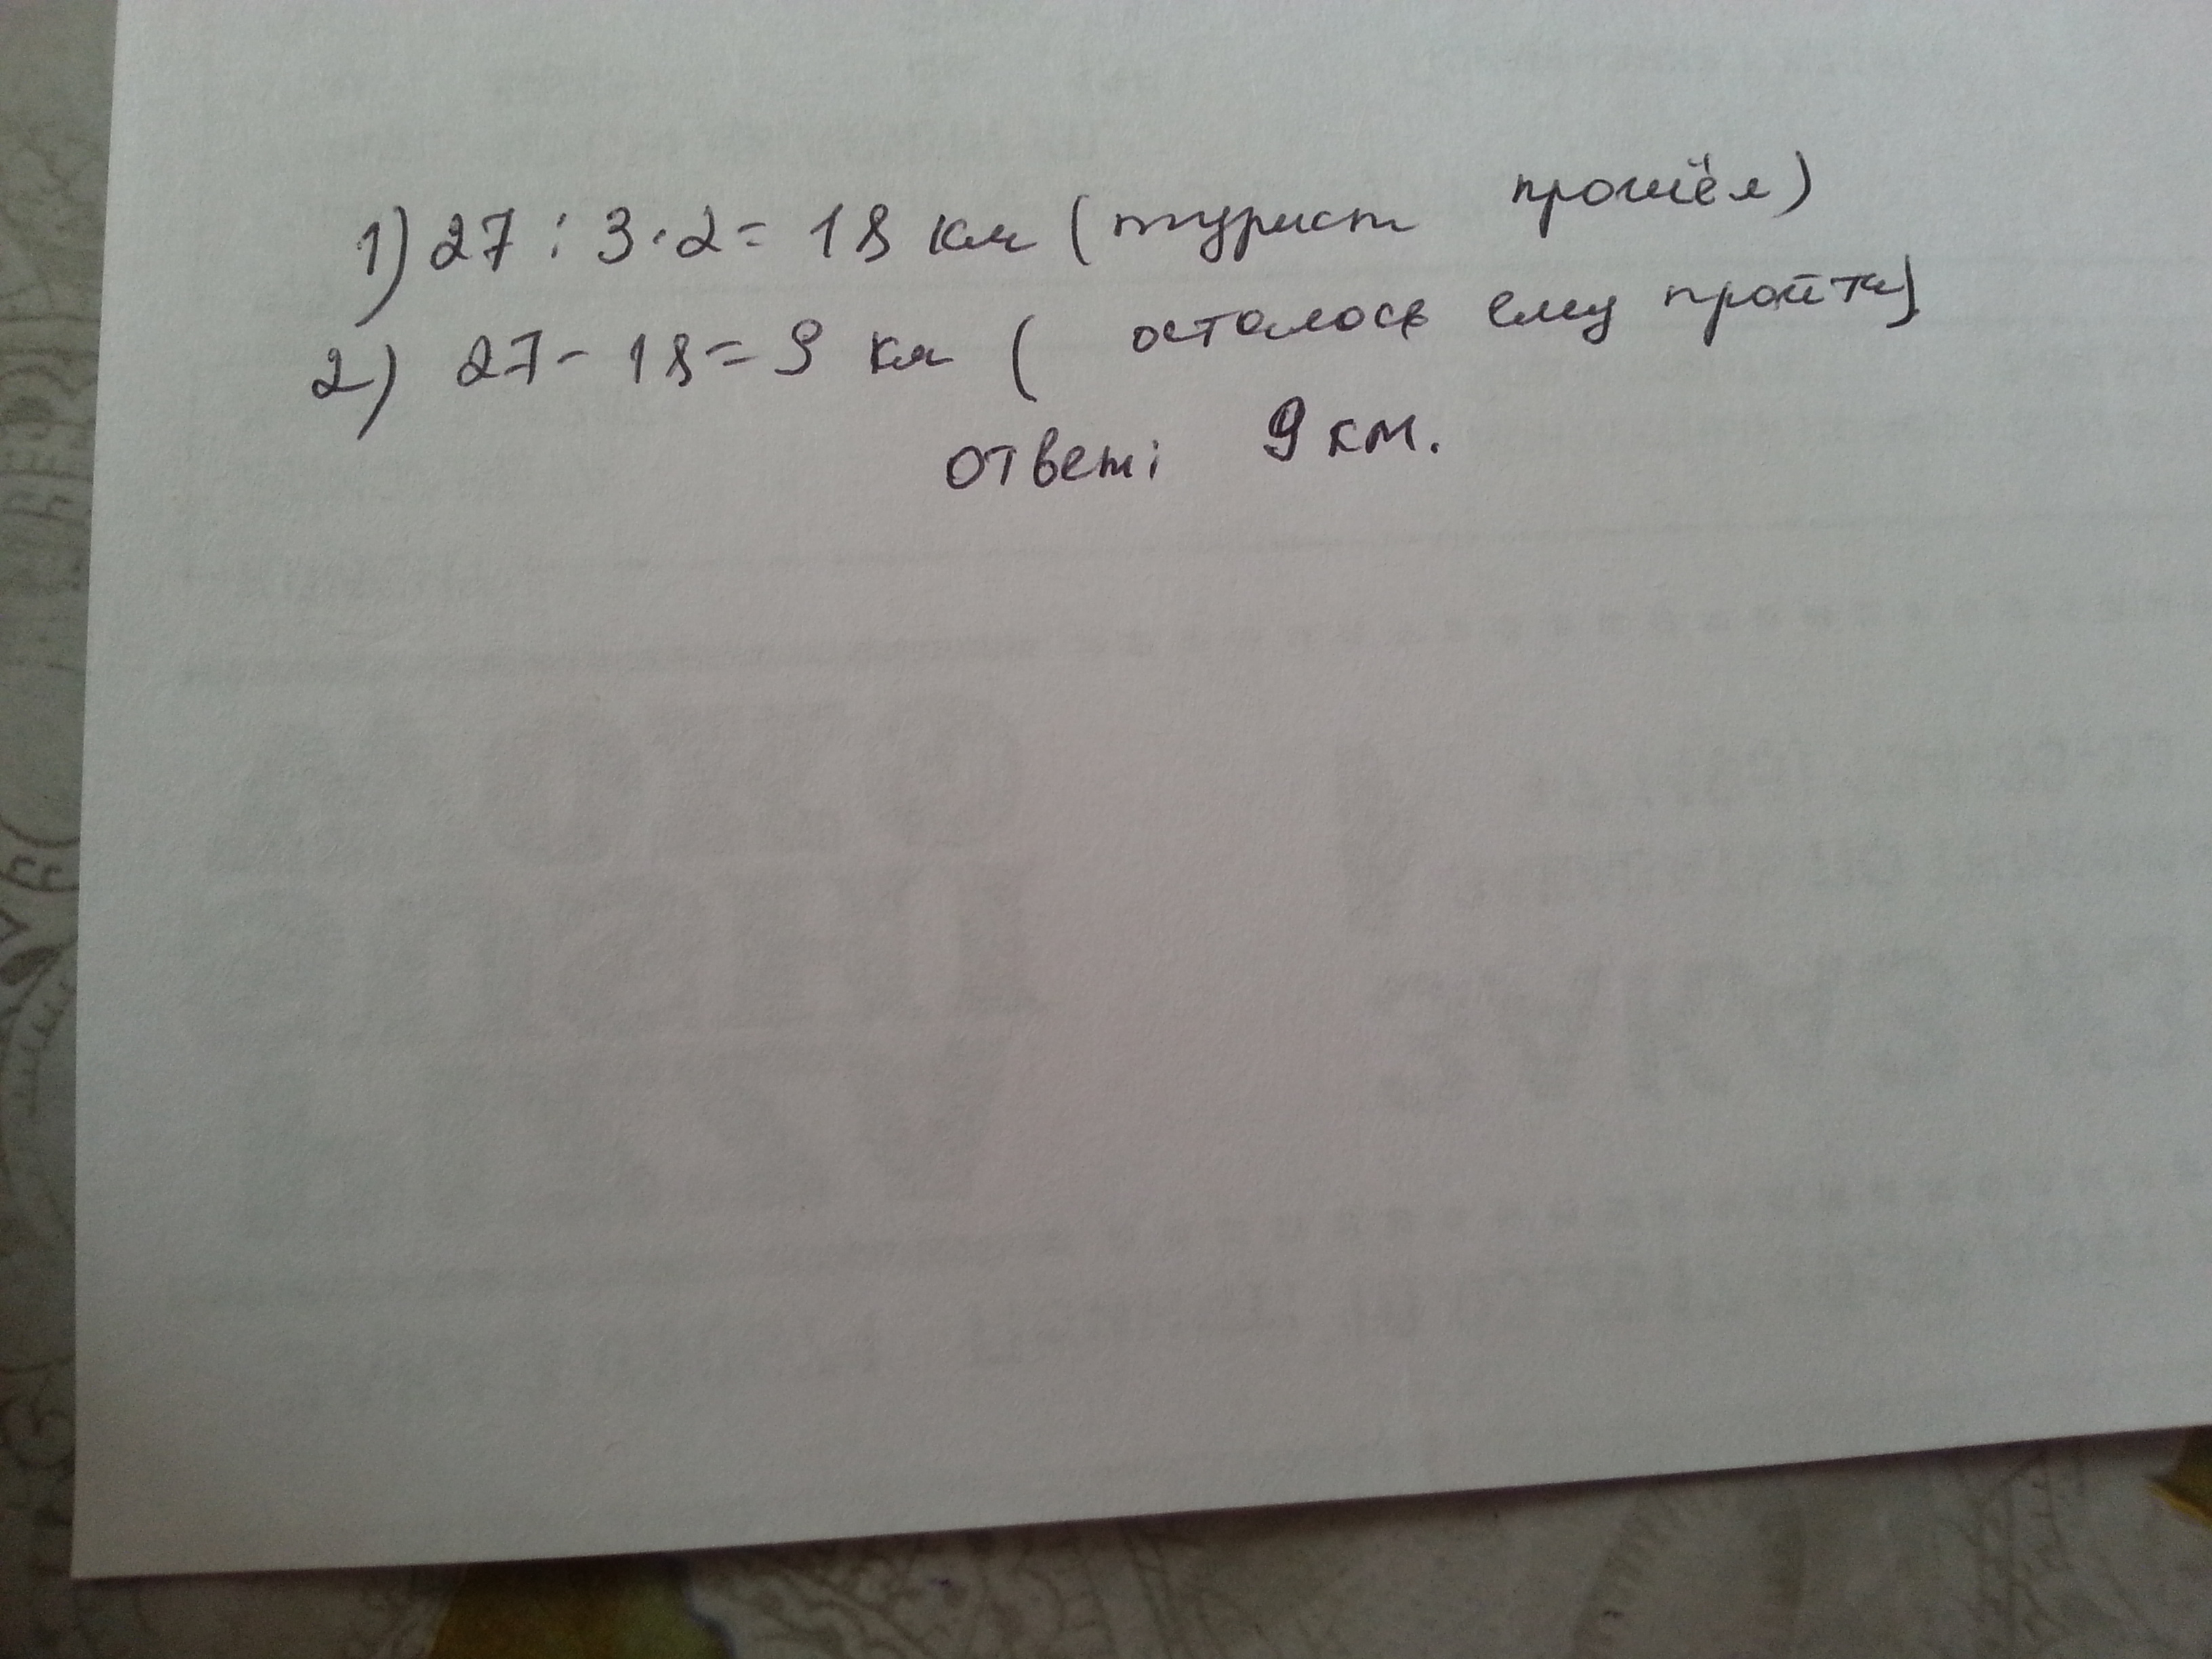 1) 27 : 3 · 2 = 18 км (турист прошёл)
2) 27 - 18 = 9 км ( осталось ему пройти)
ответ: 9 км.